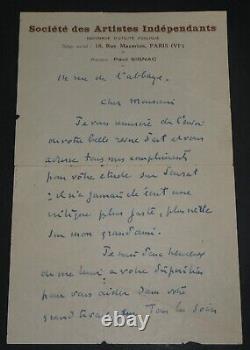 Société des Artistes Indépendants
RECONNUE D'UTILITÉ PUBLIQUE
Siège social : 18, Rue Mazarine, PARIS (VIe)
Président : Paul SIGNAC
14 rue de l'abbaye.
Cher Monsieur
Je vous remercie de l'envoi
de votre belle revue d'art et vous
adresse tous mes compliments
pour votre étude sur Seurat
: il n'a jamais été écrit une
critique plus juste, plus nette
sur mon grand ami.
Je serai heureux
de me tenir à votre disposition
pour vous aider dans votre
grand travail. Tous les soirs